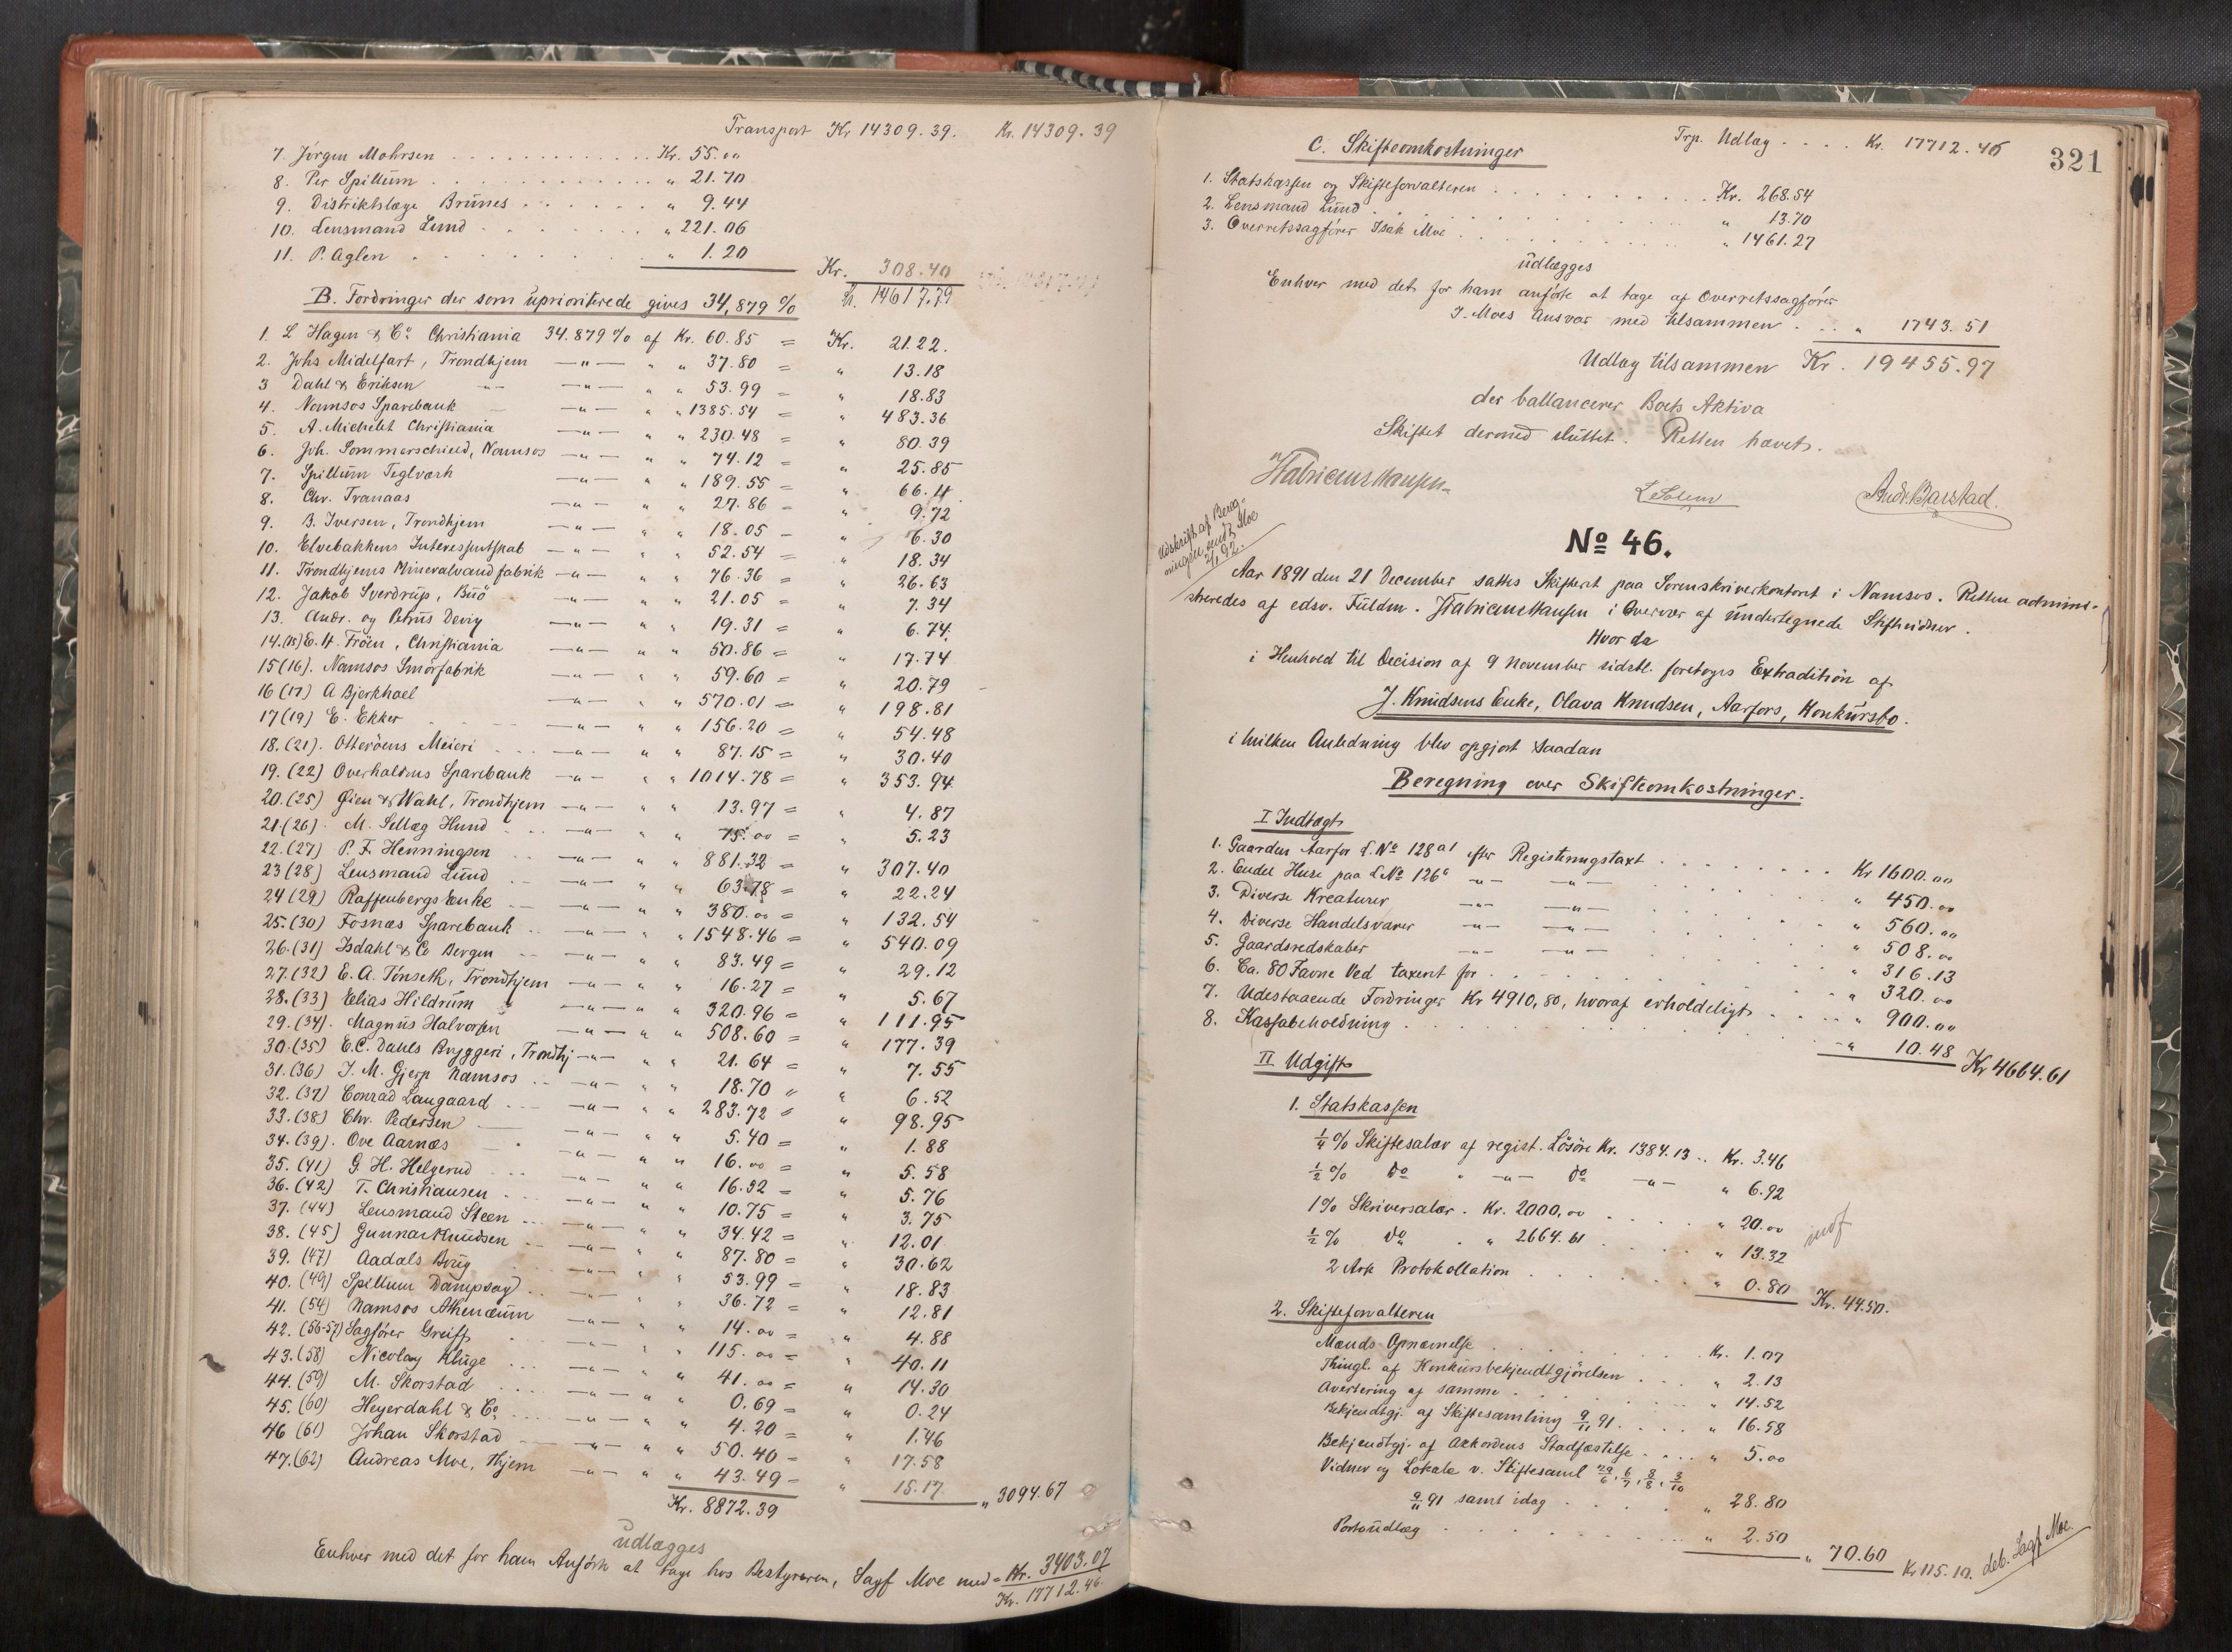 Transport Kr 14309.39. Kr. 14309.39
7. Jörgen Mohrsen . . . . Kr. 55.00
8. Per Spillum . . . . " 21.70
9. Distriktslæge Brünes . . . . " 9.44
10. Lensmand Lund . . . . " 221.06
11. P. Aglen . . . . " 1.20
Kr. 308.40
Kr. 14617.79
B. Fordringer der som uprioriterede gives 34,879 %
1. L Hagen & Co Christiania 34.879 % af Kr. 60.85 = Kr. 21.22.
2. Johs Midelfart, Trondhjem —"— " " 37.80 = " 13.18
3 Dahl & Eriksen —"— " " 53.99 = " 18.83
4. Namsos Sparebank —"— " " 1385.54 = " 483.36
5. A. Michelet Christiania —"— " " 230.48 = " 80.39
6. Joh. Sommerschield, Namsos —"— " " 74.12 = " 25.85
7. Spillum Teglværk —"— " " 189.55 = " 66.11
8. Chr. Tranaas —"— " " 27.86 = " 9.72
9. B. Iversen, Trondhjem —"— " " 18.05 - " 6.30
10. Elvebakkens Interessentskab —"— " " 52.54 = " 18.34
11. Trondhjems Mineralvandfabrik —"— " " 76.36 = " 26.63
12. Jakob Sverdrup, Buö —"— " " 21.05 = " 7.34
13. Andr. og Petrus Devig —"— " " 19.31 = " 6.74
14.(15) E. H. Fröen, Christiania —"— " " 50.86 = " 17.74
15(16). Namsos Smörfabrik —"— " " 59.60 = " 20.79
16(17) A Bjerkhoel —"— " " 570.01 = " 198.81
17(19) E. Ekker —"— " " 156.20 = " 54.48
18.(21). Otteröens Meieri —"— " " 87.15 = " 30.40
19.(22) Overhaldens Sparebank —"— " " 1014.78 = " 353.94
20.(25) Öien & Wahl, Trondhjem —"— " " 13.97 = " 4.87
21(26). M. Sellæg Hund —"— " " 15.00 = " 5.23
22.(27) P. F. Henningsen —"— " " 881.32 = " 307.40
23(28) Lensmand Lund —"— " " 63.78 = " 22.24
24(29) Raffenbergs Enke —"— " " 380.00 = " 132.54
25.(30) Fosnæs Sparebank —"— " " 1548.46 = " 540.09
26.(31) Isdahl & Co Bergen —"— " " 83.49 = " 29.12
27.(32) E. A. Tönseth, Trondhjem —"— " " 16.27 = " 5.67
28.(33) Elias Hildrum —"— " " 320.96 = " 111.95
29.(34). Magnus Halvorsen —"— " " 508.60 = " 177.39
30.(35) E.C. Dahls Bryggeri, Trondhj —"— " " 21.64 = " 7.55
31.(36) J. M. Gjerp Namsos —"— " " 18.70 " " 6.52
32.(37) Conrad Langaard —"— " " 283.72 = " 98.95
33.(38) Chr. Pedersen —"— " " 5.40 = " 1.88
34.(39). Ove Aarnæs —"— " " 16.00 = " 5.58
35.(41) G. H. Helgerud —"— " " 16.52 = " 5.76
36.(42) T. Christiansen —"— " " 10.75 = " 3.75
37.(44) Lensmand Steen —"— " " 34.42 = " 12.01
38.(45) Gunnar Knudsen —"— " " 87.80 = " 30.62
39.(47) Aadals Brug —"— " " 53.99 = " 18.83
40.(49) Spillum Dampsag —"— " " 36.72 = " 12.81
41.(54) Namsos Athenæum —"— " " 14.00 = " 4.88
42.(56-57) Sagförer Greiff —"— " " 115.00 = " 40.11
43.(58) Nicolay Kluge —"— " " 41.00 = " 14.30
44.(59) M. Skorstad —"— " " 0.69 = " 0.24
45.(60) Heyerdahl & Co —"— " " 4.20 = " 1.46
46(61) Johan Skorstad —"— " " 50.40 = " 17.58
47.(62) Andreas Moe, Thjem —"— " " 43.49 = " 15.17 " 3094.67
Kr. 8872.39
udlægges
Enhver med det for ham Anförte at tage hos Bestyreren, Sagf Moe med = Kr. 3403.07
Kr. 17712.46
321
Trp. Udlæg . . . . Kr. 17712.46
C. Skifteomkostninger
1. Statskassen og Skifteforvalteren . . . . Kr. 268.54
2. Lensmand Lund . . . . " 13.70
3. Overretssagförer Isak Moe . . . . " 1461.27
udlægges
Enhver med det for ham anförte at tage af Overretssagförer
I. Moes Ansvar med tilsammen . . . " 1743.51
Udlæg tilsammen Kr. 19455.97
der ballancerer Boets Aktiva
Skiftet dermed sluttet. Retten hævet.
L Solem Andr. Barstad.
Udskrift af Bereg-
ningen sendt Moe
2/1 92.
No 46.
Aar 1891 den 21 December sattes Skifteret paa Sorenskriverkontoret i Namsos. Retten admini-
streredes af edsv. Fuldm. i Overvær af undertegnede Skiftevidner.
Hvor da
i Henhold til Decision af 9 November sidstl. foretoges Extradition af
J. Knudsens Enke, Olava Knudsen, Aarfors, Konkursbo.
i hvilken Anledning blev opgjort saadan
Beregning over Skifteomkostninger.
I Indtægt
1. Gaarden Aarfor L.No 128a1 efter Registeringstaxt . . . . Kr 1600.00
2. Endel Huse paa LNo 126a —"— —"— . . . . " 450.00
3. Diverse Kreaturer —"— —"— . . . . " 560.00
4. Diverse Handelsvarer —"— —"— . . . . " 508.00
5. Gaardsredskaber —"— —"— . . . . " 316.13
6. Ca. 80 Favne Ved taxert for . . . . " 320.00
7. Udestaaende Fordringer Kr 4910,80, hvoraf erholdeligt . . . . " 900.00
8. Kassabeholdning . . . . " 10.48 Kr 4664.61
II Udgift
1. Statskassen
1/4 % Skiftesalær af regist. Lösöre Kr. 1384.13 . . Kr. 3.46
1/2 % do —"— do —"— " 6.92
1 % Skriversalær . Kr. 2000,00 . . . . " 20.00
1/2 % do . " 2664.61 . . . . " 13.32
2 Ark Protokollation . . . . " 0.80 Kr. 44.50.
2. Skifteforvalteren
Mænds Opnævnelse . . . . Kr. 1.07
Thingl. af Konkursbekjendtgjörelsen . . . . " 2.13
Avertering af samme . . . . " 14.52
Bekjendtgj. af Skiftesamling 9/11 91 . . . . " 16.58
Bekjendtgj. af Akkordens Stadfæstelse . . . . " 5.00
Vidner og Lokale v. Skiftesaml 29/6, 6/7, 8/8, 3/10
9/11 91 samt idag . . . . " 28.80
Portoudlæg . . . . " 2.50 " 70.60 Kr 115.10. deb. Sagf. Moe.